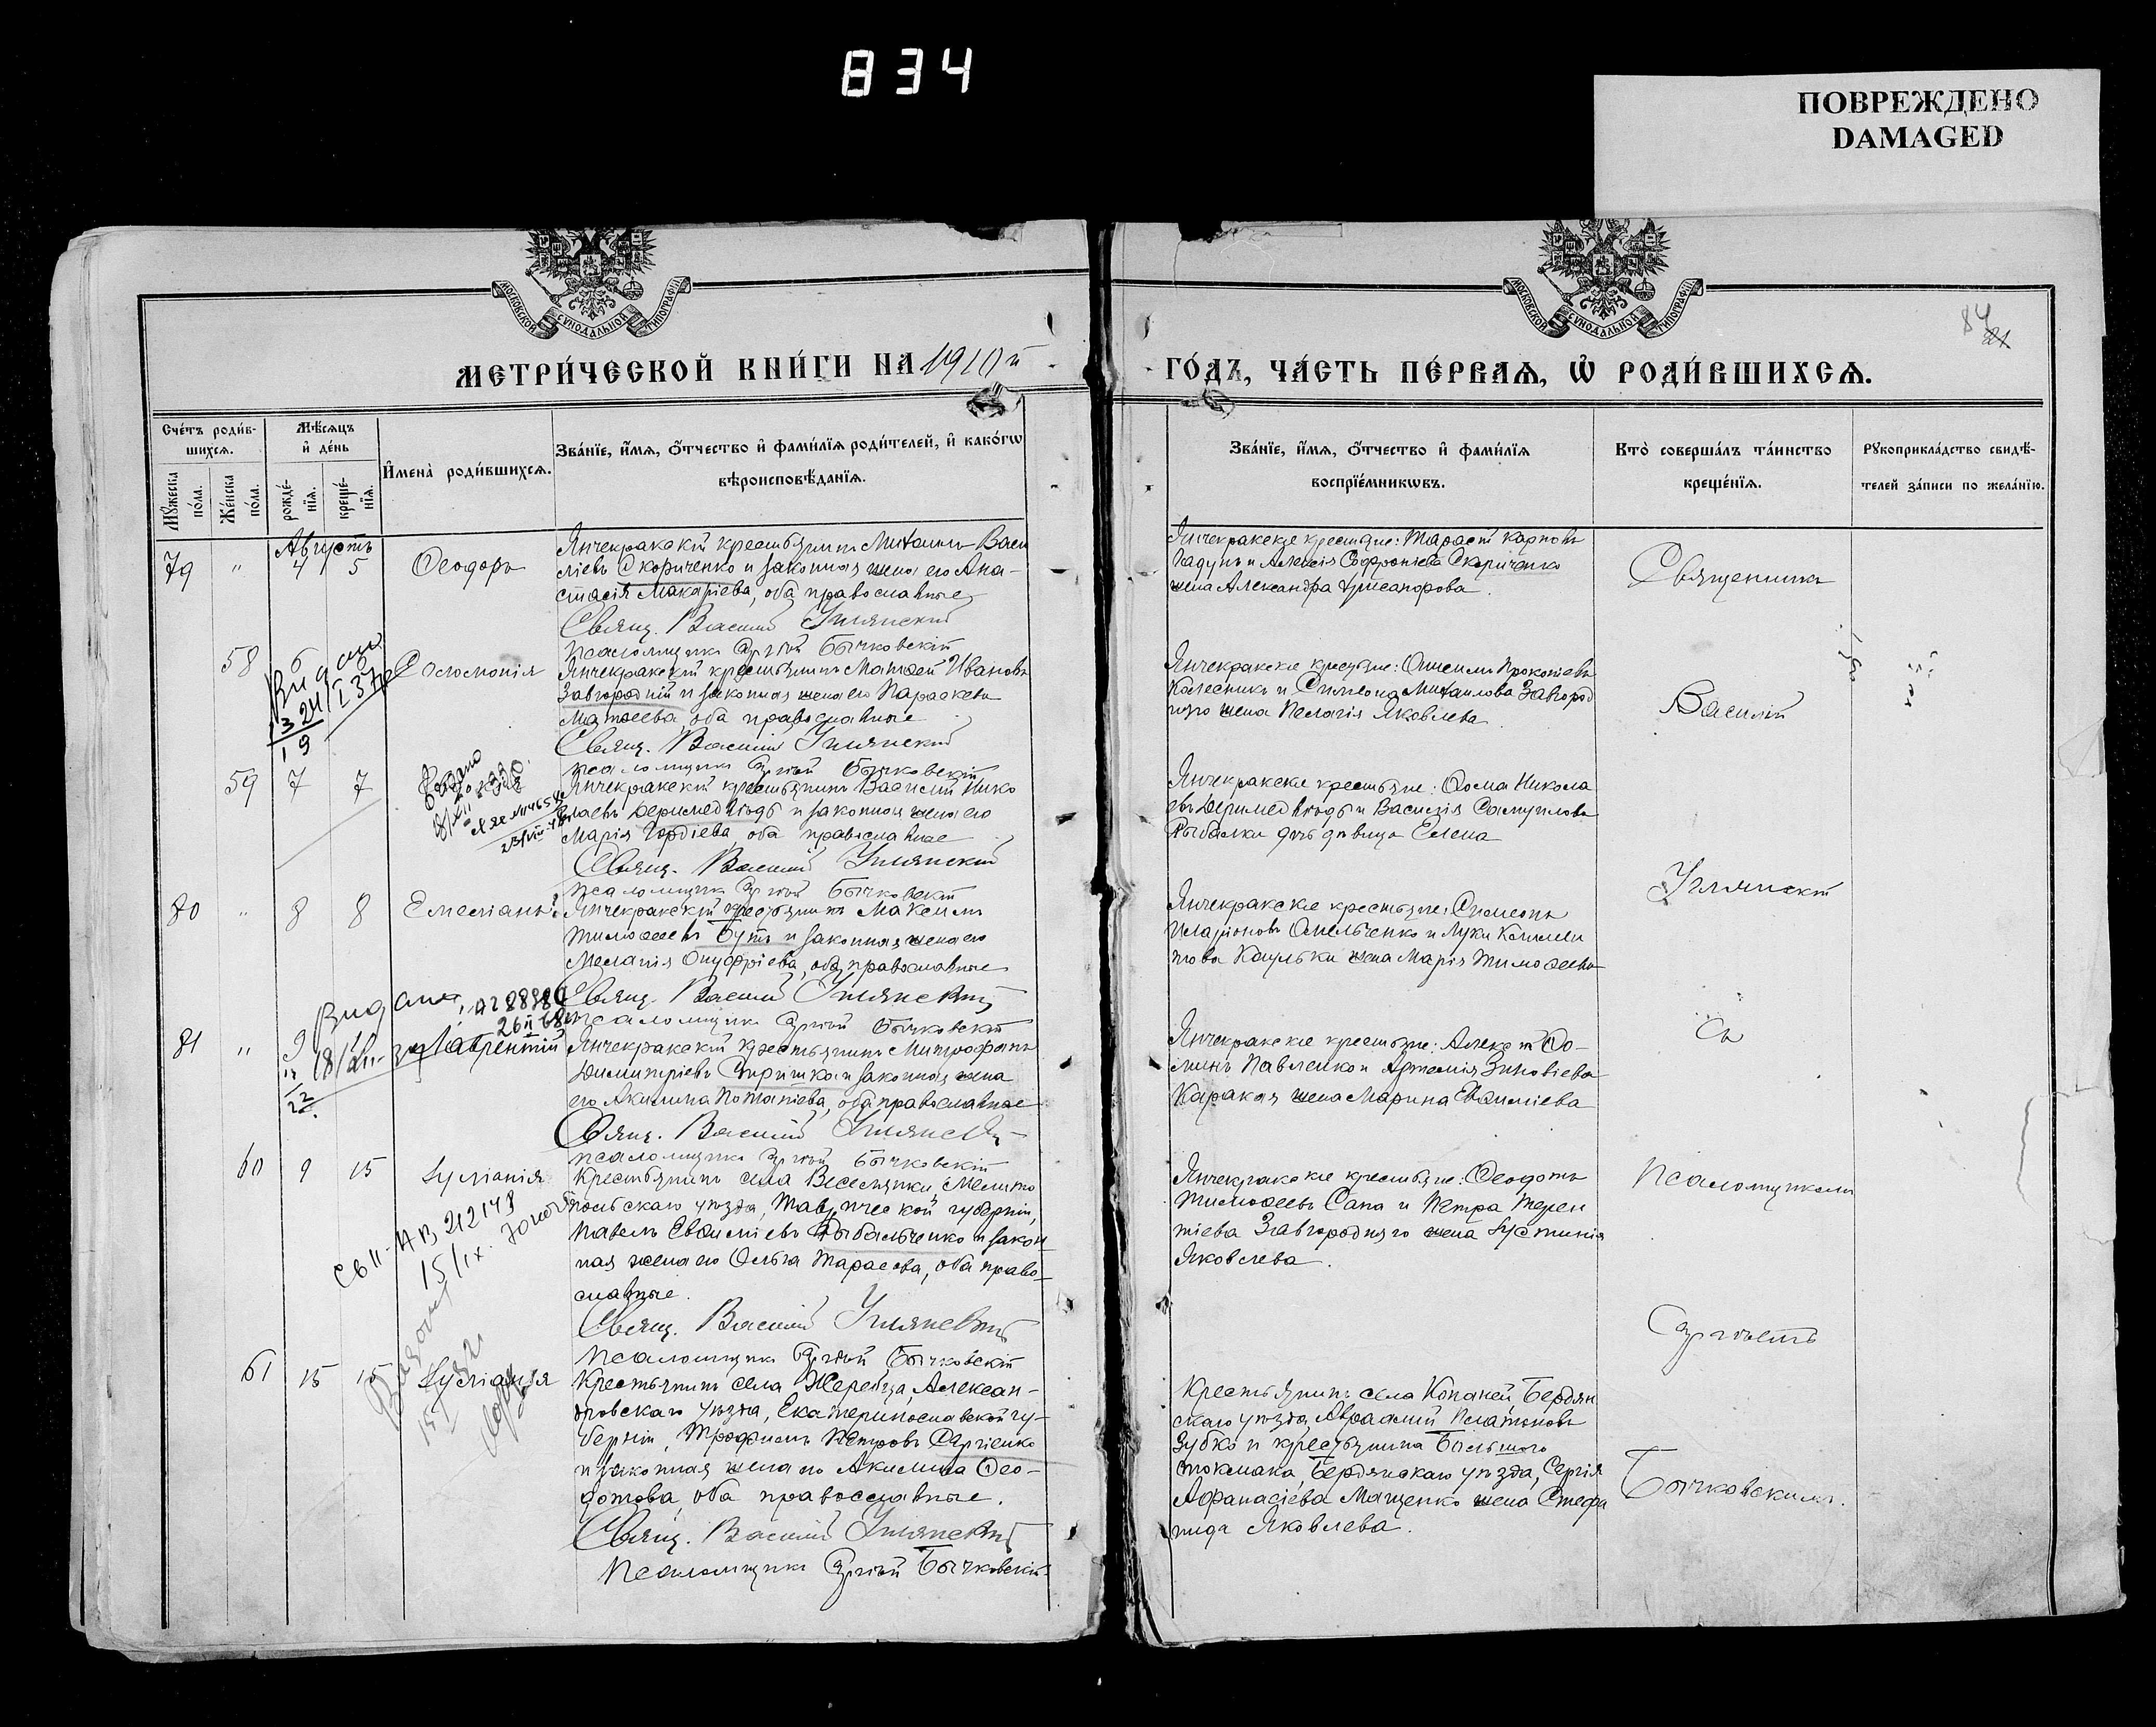 834
ПОВРЕЖДЕНО
DAMAGED
МОСКОВСКОЙ СѴНОДАЛЬНОЙ ТИПОГРАФІИ
МОСКОВСКОЙ СѴНОДАЛЬНОЙ ТИПОГРАФІИ
84
МЕТРИ́ЧЕСКОЙ КНИ́ГИ НА 1910й
ГО́ДЪ, ЧА́СТЬ ПЕ́РВАѦ, Ѡ҆ РОДИ́ВШИХСѦ.
Сче́тъ роди́в-
шихсѧ.
Мꙋ́жеска по́ла.
Же́нска по́ла.
Мѣ́сѧцъ
и҆ де́нь
рожде́-
нїѧ.
креще́-
нїѧ.
И҆мена̀ роди́вшихсѧ.
Зва́нїе, и҆́мѧ, ѻ҆́тчество и҆ фами́лїѧ роди́телей, и҆ како́гѡ
вѣроисповѣ́данїѧ.
Зва́нїе, и҆́мѧ, ѻ҆́тчество и҆ фами́лїѧ
воспрїе́мникѡвъ.
Кто̀ соверша́лъ та́инство
креще́нїѧ.
Рꙋкоприкла́дство свидѣ́-
телей за́писи по жела́нїю.
Августъ
79 " 4 5 Ѳеодоръ
Янчекракскій крестьянинъ Михаилъ Васи
ліевъ Скориченко и законная жена его Ана-
стасія Макаріева, оба православные
Свящ. Василій Улянскій
псаломщикъ Сергѣй Бычковскій
Янчекракскіе крестьяне: Тарасій Карповъ
Гадунъ и Алексія Софроніева Скориченко
жена Александра Никанорова.
58 6 6 Соломонія
Янчекракскій крестьянинъ Матѳей Ивановъ
Завгородній и законная жена его Параскева
Матѳеева, оба православные
Свящ. Василій Улянскій
псаломщикъ Сергѣй Бычковскій
Янчекракскіе крестьяне: Прокопіевъ
Колесникъ и Симеона Михаилова Завгород
няго жена Пелагія Яковлева
59 7 7
Янчекракскій крестьянинъ Василій Нико
лаевъ Деримедвѣдь и законная жена его
Марія Гордіева, оба православные
Свящ. Василій Улянскій
псаломщикъ Сергѣй Бычковскій
Янчекракскіе крестьяне: Ѳома Никола
евъ Деримедвѣдь и Василія Самуилова
Рыбалки дочь дѣвица Елена
80 " 8 8 Емеліанъ
Янчекракскій крестьянинъ Максимъ
Тимоѳеевъ Бутъ и законная жена его
Меланія Онуфріева, оба православные
Свящ. Василій Улянскій
псаломщикъ Сергѣй Бычковскій
Янчекракскіе крестьяне: Симеонъ
Иларіоновъ Омельченко и Луки Климен
това Каульки жена Марія Тимоѳеева
81 " 9 Лаврентій
Янчекракскій крестьянинъ Митрофанъ
Димитріевъ и законная жена
его Акилина Потапіева, оба православные
Свящ. Василій Улянскій
псаломщикъ Сергѣй Бычковскій
Янчекракскіе крестьяне: Алексій Ѳо-
минъ Павленко и Артемія Зиновіева
Каракая жена Марина Евѳиміева
60 9 15 Іуліанія
Крестьянинъ села Веселянки, Мелито
польскаго уѣзда, Таврической губерніи,
Павелъ Евѳиміевъ Рыбальченко и закон
ная жена его Ольга Тарасова, оба право-
славные.
Свящ. Василій Улянскій
псаломщикъ Сергѣй Бычковскій
Янчекракскіе крестьяне: Ѳеодотъ
Тимоѳеевъ Сапа и Петра Терен
тіева Завгородняго жена Іустинія
Яковлева.
61 15 15 Іуліанія
Крестьянинъ села Жеребца, Алексан-
дровскаго уѣзда, Екатеринославской гу-
берніи, Трофимъ Петровъ Сергіенко
и законная жена его Акилина Ѳео-
дотова, оба православные.
Свящ. Василій Улянскій
Псаломщикъ Сергѣй Бычковскій
Крестьянинъ села Копаней, Бердян
скаго уѣзда, Авраамій Платоновъ
Зубко и крестьянина Большого
Токмака, Бердянскаго уѣзда, Сергія
Афанасіева Мащенко жена Стефа
нида Яковлева.
Священникъ
Василій
Улянскій
Съ
Псаломщикомъ
Сергѣемъ
Бычковскимъ.